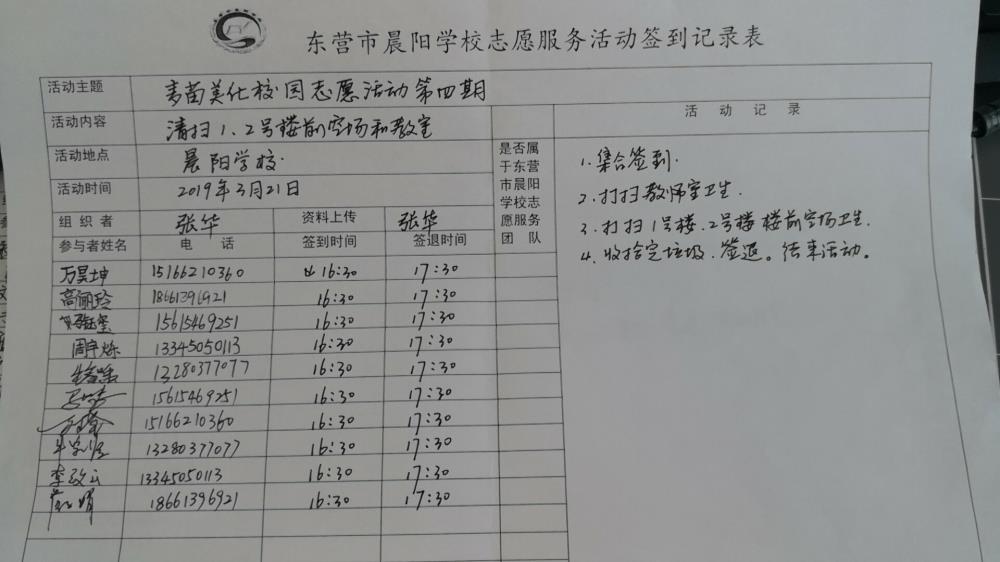 东营市晨阳学校志愿服务活动签到记录表
活动主题 麦苗美化校园志愿活动第四期
活动内容 清扫1、2号楼前空场和教室
活动地点 晨阳学校
活动时间 2019年3月21日
组织者 张华 资料上传 张华
参与者姓名 电话 签到时间 签退时间
万昊坤 15166210360 16:30 17:30
高俪玲 18661396921 16:30 17:30
15615469251 16:30 17:30
周宇烁 13345050113 16:30 17:30
13280377077 16:30 17:30
15615469251 16:30 17:30
15166210360 16:30 17:30
13280377077 16:30 17:30
李政云 13345050113 16:30 17:30
18661396921 16:30 17:30
是否属
于东营
市晨阳
学校志
愿服务
团队
活动记录
1.集合签到.
2.打扫教师室卫生.
3.打扫1号楼、2号楼楼前空场卫生.
4.收拾完垃圾.签退。结束活动。